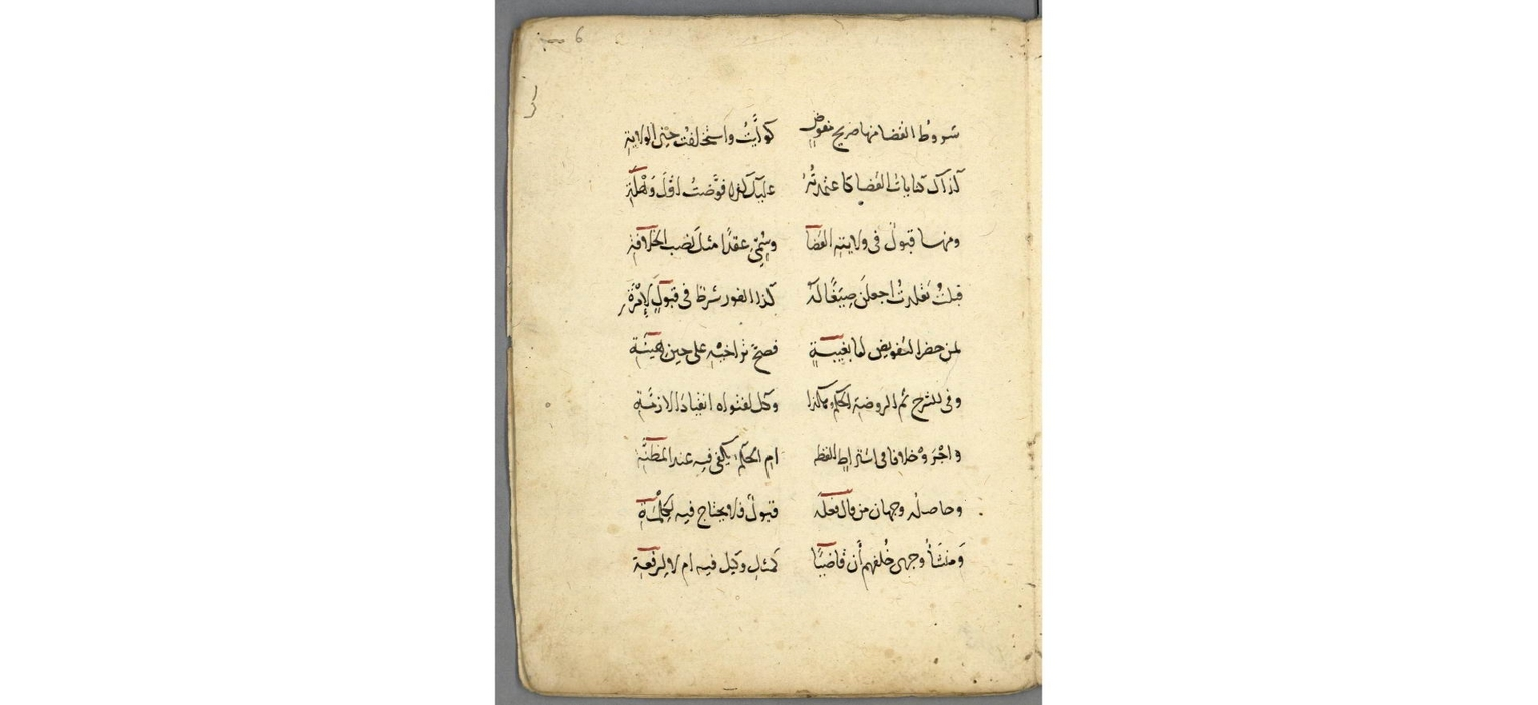 6
شروط القضا منها صريح مفوض كوليت واستخلفت حتى الولاية
كذاك كنايات القضا كاعتمدته عليك كذا فوضت اول وهلة
ومنها قبول في ولاية القضا وسمي عقدا مثل نصب الخلافة
قبلت تقلدت اجعلن صيغا له كذا الفور شرط في قبول لإمرة
لمن حضر التفويض اما بغيبة فصح تراخيه على حين هيئة
وفي الشرح ثم الروضة الحكم هكذا وكل لفتواه انقياد الازمة
واجروه خلافا في اشتراط لفظه ام الحكم يكفي فيه عند المظنة
وحاصله وجهان من قال فعله قبول فلا يحتاج فيه لكلمة
ومنشأ وجهي خلفهم أن قاضيا كمثل وكيل فيه ام لا لرفعة